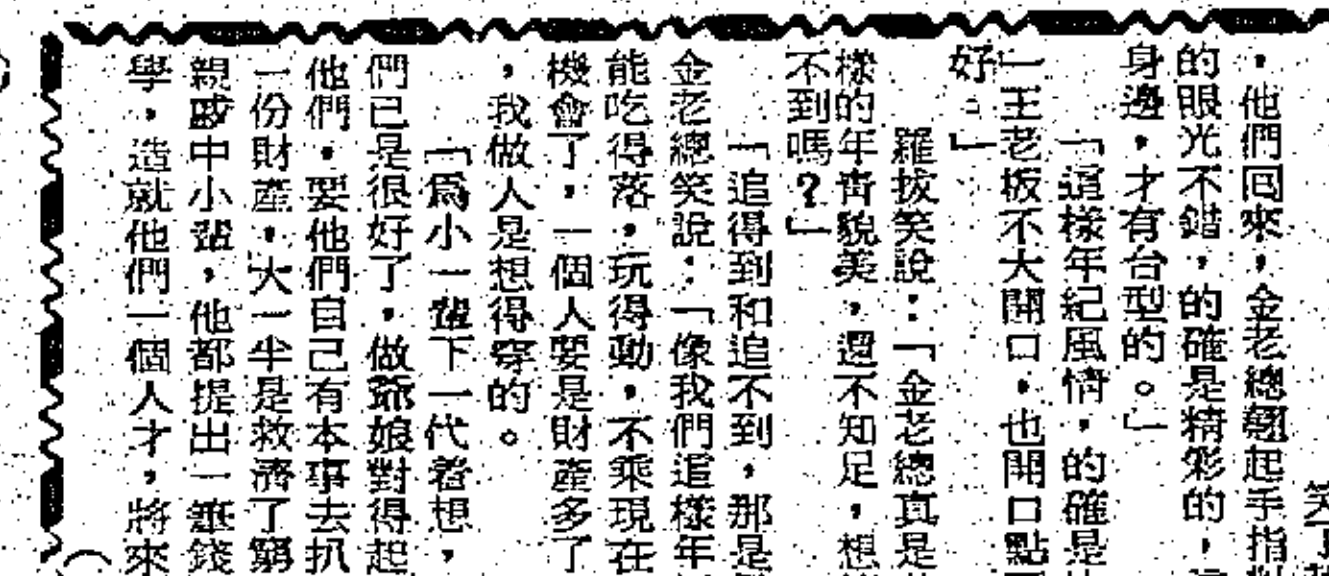 笑了起
，他們回來，金老總翹起手指對
的眼光不錯，的確是精彩的，
身邊，才有台型的。」
「這樣年紀風情，的確是
王老板不大開口，也開口點
好。」
羅拔笑說：「金老總真是
樣的年青貌美，還不知足，想
不到嗎？」
「追得到和追不到，那是
金老總笑說：「像我們這樣年
能吃得落，玩得動，不乘現在
機會了，一個人要是財產多了
，我做人是想得穿的。
「爲小一輩下一代着想，
們已是很好了，做爺娘對得起
他們，要他們自己有本事去扒
一份財產，大一半是救濟了窮
親戚中小輩，他都提出一筆錢
學，造就他們一個人才，將來